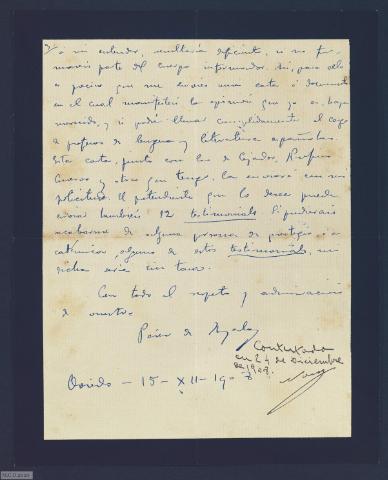 a mi entender, resultaría deficiente, si no for-
maseis parte del cuerpo informador. Así, para ello
es preciso que me envíes una carta o documento
en el cual manifestéis la opinión que yo os haya
merecido, y si podré llenar cumplidamente el cargo
de profesor de lengua y literatura españolas.
Esta carta, junto con las de Cejador, Rufino
Cuervo y otras que tengo, la enviaré con mi
solicitud. El pretendiente que lo desee puede
enviar también 12 testimonials. Si pudierais
recabarme de alguna persona de prestigio o
catedrático, alguno de estos testimonials, mi
dicha sería sin tasa.
Con todo el respeto y admiración
de vuestro
Pérez de Ayala
Contestada
en 24 de Diciembre
de 1908.
Oviedo - 15 - XII - 190